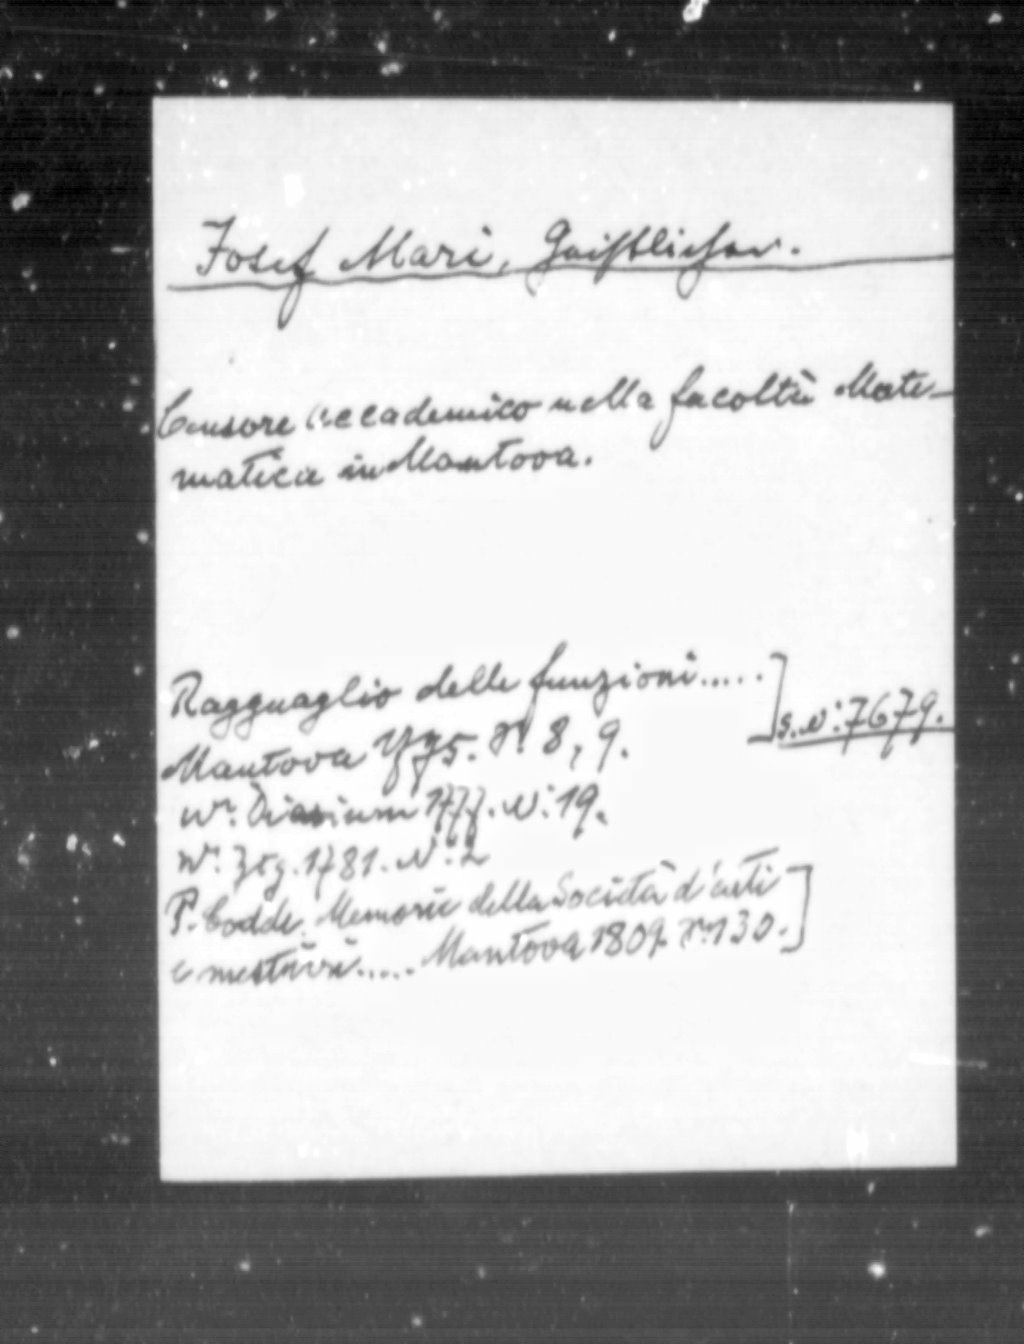 Josef Mari, Geistlicher.
Censore accademico nella facoltà Mate-
matica in Mantova.
Ragguaglio delle funzioni.....
s. N: 7679.
Mantova 1775. S. 8, 9.
Wr. Diarium 1777. N: 19.
Wr. Ztg. 1781. N: 2
P. Codde. Memorie della Società d'arti
e mestieri..... Mantova 1807. S. 130.